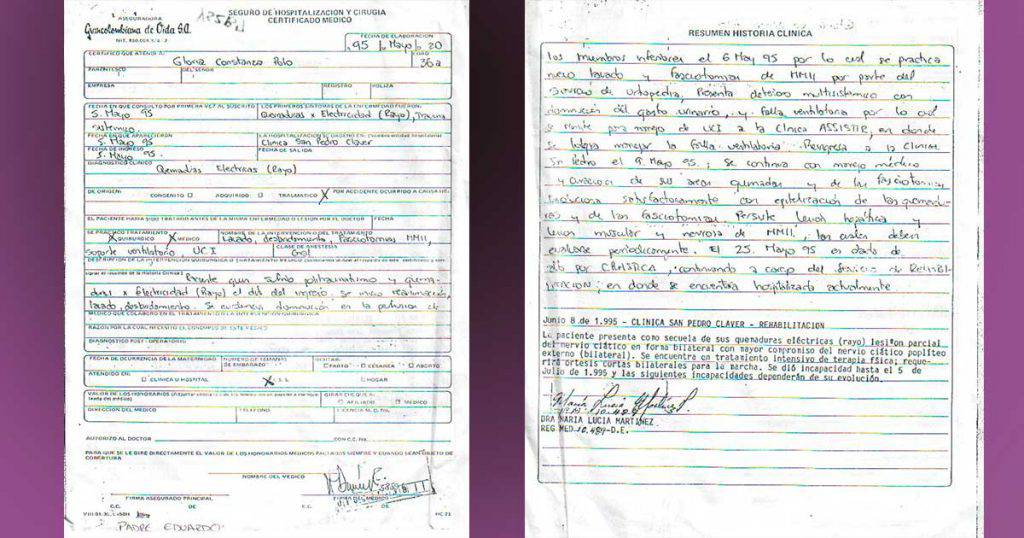 ASEGURADORA
Grancolombiana de Vida S.A.
SEGURO DE HOSPITALIZACION Y CIRUGIA
CERTIFICADO MEDICO
FECHA DE ELABORACION
95 Mayo 20
CERTIFICO QUE ATENDI A:
Gloria Constanza Polo
36a
PARENTESCO DEL SEÑOR
EMPRESA REGISTRO POLIZA
FECHA EN QUE CONSULTO POR PRIMERA VEZ AL SUSCRITO LOS PRIMEROS SINTOMAS DE LA ENFERMEDAD FUERON:
5. Mayo 95 Quemaduras x Electricidad (Rayo), Trauma
sistemico.
FECHA EN QUE APARECIERON
5. Mayo 95 Clinica San Pedro Claver
FECHA DE INGRESO FECHA DE SALIDA
5. Mayo 95.
DIAGNOSTICO CLINICO
Quemadias Electricas (Rayo)
DE ORIGEN: CONGENITO ADQUIRIDO TRAUMATICO X POR ACCIDENTE OCURRIDO A CAUSA DE:
EL PACIENTE HABIA SIDO TRATADO ANTES DE LA MISMA ENFERMEDAD O LESION POR EL DOCTOR FECHA
SE PRACTICO TRATAMIENTO NOMBRE DE LA INTERVENCION O DEL TRATAMIENTO
X QUIRURGICO X MEDICO Lavado, desbridamiento, Fasciotomias MMII,
soporte ventilatorio, UCI CLASE DE ANESTESIA
Gral
Paciente que sufrio politraumatismo y quema-
duras x Electricidad (Rayo) el dia del ingreso se inicio reanimación,
lavado, desbridamiento. Se evidencia disminución en la perfusion de
MEDICO QUE COLABORO EN EL TRATAMIENTO O LA INTERVENCION QUIRURGICA
RAZON POR LA CUAL NECESITO EL CONCURSO DE ESTE MEDICO
DIAGNOSTICO POST-OPERATORIO
FECHA DE OCURRENCIA DE LA MATERNIDAD NUMERO DE SEMANAS DE EMBARAZO
PARTO CESAREA ABORTO
ATENDIDO EN:
CLINICA U HOSPITAL X HOGAR
VALOR DE LOS HONORARIOS GIRAR CHEQUE A:
AFILIADO MEDICO
DIRECCION DEL MEDICO TELEFONO LICENCIA
AUTORIZO AL DOCTOR CON C.C. No.
PARA QUE SE LE GIRE DIRECTAMENTE EL VALOR DE LOS HONORARIOS MEDICOS PACTADOS SIEMPRE Y CUANDO SEAN OBJETO DE
COBERTURA
NOMBRE DEL MEDICO
FIRMA ASEGURADO PRINCIPAL FIRMA DEL MEDICO
C.C. DE C.C. DE
HC-23
PADRE EDUARDO
RESUMEN HISTORIA CLINICA
los miembros inferiores el 6 May 95 por lo cual se practica
nuevo lavado y fasciotomias de MMII por parte del
servicio de ortopedia, Presenta deterioro multisistemico con
disminucion del gasto urinario, y falla ventilatoria por lo cual
se remite para manejo de UCI a la Clinica ASSISTIR, en donde
se logra manejar la falla ventilatoria. Reingresa a la Clinica
San Pedro el 9. Mayo 95; se continua con manejo médico
y curacion de sus areas quemadas y de las fasciotomias
evoluciona satisfactoriamente con epitelizacion de las quemadu-
ras y de las fasciotomias. Persiste lesion hepática y
lesion muscular y nerviosa de MMII, las cuales deben
evaluarse periodicamente. El 25 Mayo 95 es dada de
alta por C. PLASTICA, continuando a cargo del Servicio de Rehabi-
litacion; en donde se encuentra hospitalizada actualmente
Junio 8 de 1.995 - CLINICA SAN PEDRO CLAVER - REHABILITACION
La paciente presenta como secuela de sus quemaduras eléctricas (rayo) lesión parcial
del nervio ciático en forma bilateral con mayor compromiso del nervio ciático poplíteo
externo (bilateral). Se encuentra en tratamiento intensivo de terapia física; reque-
rirá ortesis cortas bilaterales para la marcha. Se dió incapacidad hasta el 5 de
Julio de 1.995 y las siguientes incapacidades dependerán de su evolución.
María Lucia Martínez P.
DRA MARIA LUCIA MARTINEZ
REG MED. 10.489-D.E.